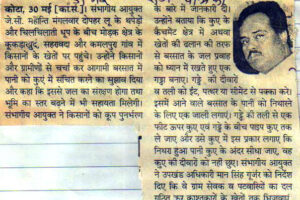 कोटा, 30 मई [कासं.]। संभागीय आयुक्त
जे.सी. महान्ति मंगलवार दोपहर लू के थपेड़ों
और चिलचिलाती धूप के बीच मोड़क क्षेत्र के
कूकड़ाखुर्द, सहरावदा और कमलपुरा गांव में
किसानों के खेतों पर पहुंचे। उन्होंने किसानों
और ग्रामीणों से चर्चा कर आगामी बरसात में
पानी को कुए में संचित करने का सुझाव दिया
और कहा कि इससे जल का संरक्षण होगा तथा
भूमि का स्तर बढ़ाने में भी सहायता मिलेगी।
संभागीय आयुक्त ने किसानों को कूप पुनर्भरण
के बारे में जानकारी दी।
उन्होंने बताया कि कुए के
कैचमेंट क्षेत्र में अथवा
खेतों की ढलान की तरफ
से बरसात के जल प्रवाह
को ध्यान में रखते हुए एक
गड्डा बनाए। गड्डे की दीवारें
व तली को ईंट, पत्थर या सीमेंट से पक्का करे।
इसमें आने वाले बरसात के पानी को निथारने
के लिए एक जाली लगाएं। गड्डे की तली से एक
फीट ऊपर कुएं एवं गड्डे के बीच पाइप कुए तक
ले जाए और उसे कुए में इस प्रकार लगाएं कि
निथरा हुआ पानी कुए के अंदर सीधा जाए, वह
कुए की दीवारों को नहीं छुए। संभागीय आयुक्त
ने उपखंड अधिकारी मान सिंह गूर्जर को निर्देश
दिए कि वे ग्राम सेवक व पटवारियों का दल